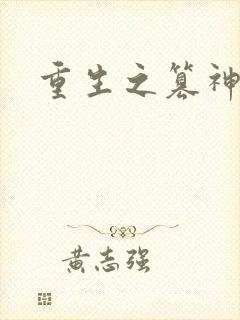 重生之篡神
黄志强